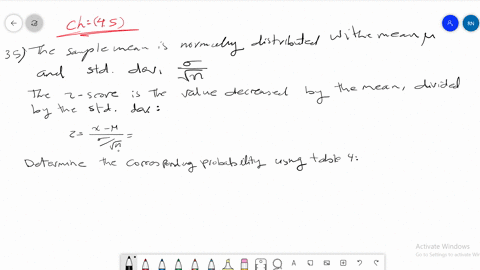 Ch=(4.5)
35) The sample mean is normally distributed with mean μ
and std. dev. σ/√n
The z-score is the value decreased by the mean, divided
by the std. dev:
z = x-μ / σ/√n =
Determine the corresponding probability using table 4:
RN
Activate Windows
Go to Settings to activate Windows.